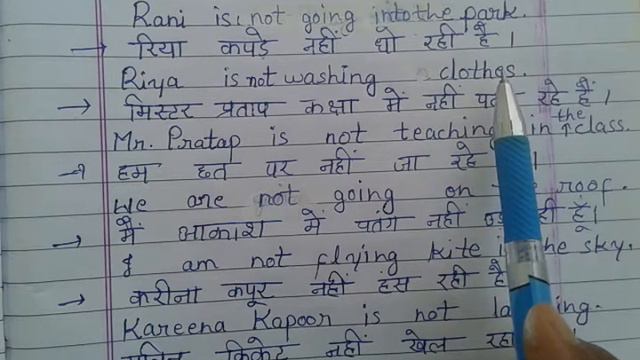 Rani is not going into the park.
→ रिया कपड़े नहीं धो रही है।
Riya is not washing clothes.
→ मिस्टर प्रताप कक्षा में नहीं रहे हैं।
Mr. Pratap is not teaching in the class.
→ हम छत पर नहीं जा रहे
We are not going on roof.
→ मैं आकाश में पतंग नहीं हूँ।
I am not flying kite sky.
→ करीना कपूर नहीं हस रही है
Kareena Kapoor is not
क्रिकेट नहीं खेल रहा